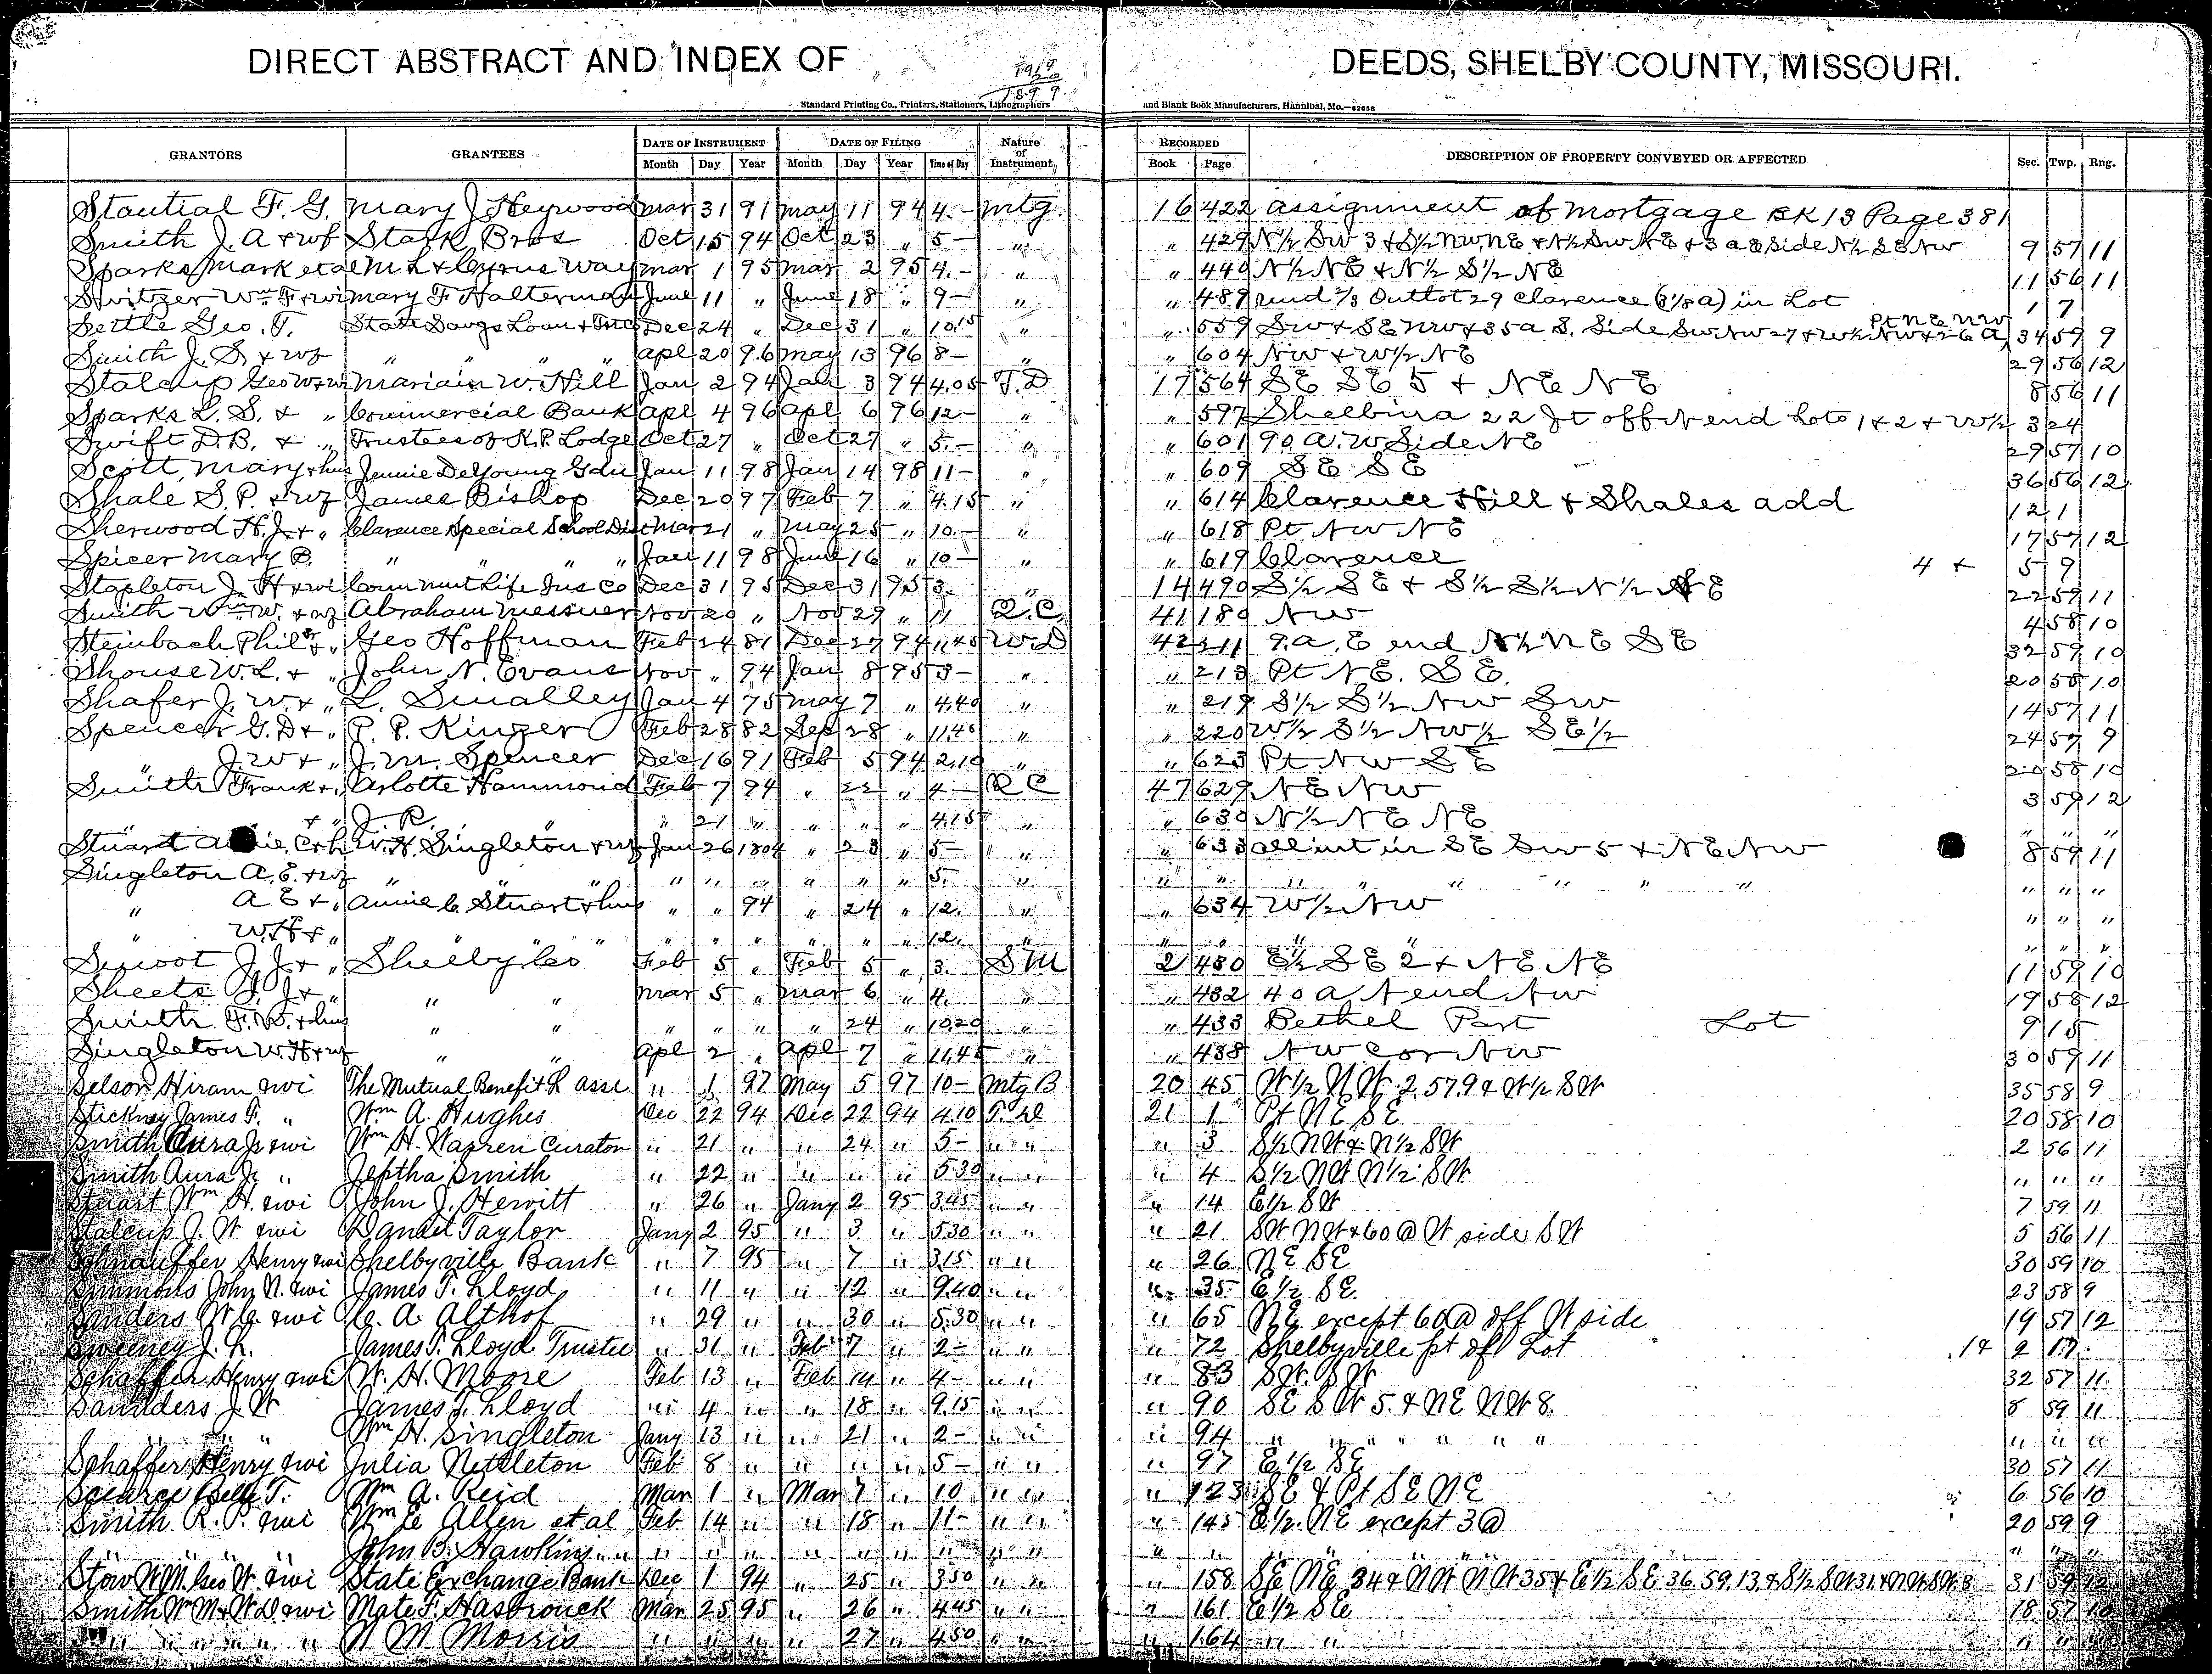 DIRECT ABSTRACT AND INDEX OF DEEDS, SHELBY COUNTY, MISSOURI.
Standard Printing Co., Printers, Stationers, Lithographers and Blank Book Manufacturers, Hannibal, Mo.
GRANTORS GRANTEES DATE OF INSTRUMENT DATE OF FILING Nature of Instrument RECORDED DESCRIPTION OF PROPERTY CONVEYED OR AFFECTED Sec. Twp. Rng.
Month Day Year Month Day Year Time of Day Book Page
Stautial F. G. Mary J Heywood Mar 31 91 May 11 94 4.- Mtg. 16 422 assignment of mortgage BK 13 Page 381
Smith J. A + wf Stark Bros Oct 15 94 Oct 23 " 5- " " 429 N½ SW 3 + S½ NW NE + N½ SW NE + 3 a E side N½ SE NW 9 57 11
Sparks Mark et al M L + Cyrus Way Mar 1 95 Mar 2 95 4.- " " 440 N½ NE + N½ S½ NE 11 56 11
Switzer Wm F + wi Mary F Halterman June 11 " June 18 " 9- " " 489 und ⅔ Outlot 29 Clarence (3⅛ a) in Lot 1 7
Settle Geo. T. State Savgs Loan + Tr Co Dec 24 " Dec 31 " 10.15 " " 559 SW + SE NW + 35 a S. Side SW NW 27 + W½ NW + 26 a Pt NE NW 34 59 9
Smith J. S. + wf " " " " Apl 20 96 May 13 96 8- " " 604 NW + W½ NE 29 56 12
Stalcup Geo W + wi Mariain W. Hill Jan 2 94 Jan 3 94 4.05 T.D 17 564 SE SE 5 + NE NE 8 56 11
Sparks L. S. + " Commercial Bank Apl 4 96 Apl 6 96 12- " " 597 Shelbina 22 ft off N end Lots 1 + 2 + W½ 3 24
Swift D.B. + " Trustees of K.P. Lodge Oct 27 " Oct 27 " 5.- " " 601 90 a. W Side NE 29 57 10
Scott, Mary + hus Jennie DeYoung Gdn Jan 11 98 Jan 14 98 11- " 609 SE SE 36 56 12
Shale S. P. + wf James Bishop Dec 20 97 Feb 7 " 4.15 " " 614 Clarence Hill + Shales add 12 1
Sherwood H. J. + " Clarence Special School Dist Mar 21 " May 25 " 10.- " " 618 Pt NW NE 17 57 12
Spicer Mary B. " " " " Jan 11 98 June 16 " 10- " " 619 Clarence 4 + 5 9
Stapleton J. H + wi Conn Mut Life Ins Co Dec 31 95 Dec 31 95 3. " 14 490 S½ SE + S½ S½ N½ SE 22 59 11
Smith Wm W. + wf Abraham Messner Nov 20 " Nov 29 " 11 Q.C. 41 180 NW 4 58 10
Steinbach Phil Sr + " Geo Hoffman Feb 24 81 Dec 27 94 11.45 W D 42 211 9. a. E end N½ NE SE 32 59 10
Shouse W. L. + " John N. Evans Nov " 94 Jan 8 95 3- " " 213 Pt NE. SE. 20 58 10
Shafer J. W. + " L. Smalley Jan 4 75 May 7 " 4.40 " " 219 S½ S½ NW SW 14 57 11
Spencer G. D + " P. P. Kinzer Feb 28 82 Sep 28 " 11.45 " " 220 W½ S½ NW½ SE½ 24 57 9
" J. W + " J. M. Spencer Dec 16 91 Feb 5 94 2.10 " " 623 Pt NW SE 20 58 10
Smith Frank + " Arlotte Hammond Feb 7 94 " 22 " 4- Q C 47 629 NE NW 3 59 12
" + " J. R. " " 21 " " " " 4.15 " " 630 N½ NE NE " " "
Stuart C + h W. H. Singleton + wf Jan 26 1894 " 23 " 5- " " 633 all int in SE SW 5 + NE NW 8 59 11
Singleton A. E. + wf " " " " " " " " " 5. " " " " " " " " " " " "
" A E + " Annie C Stuart + hus " " 94 " 24 " 12. " " 634 W½ NW " " "
" W. H + " " " " " " " " " " 12. " " " " " " " "
Smoot J. J. + " Shelby Co Feb 5 " Feb 5 " 3. S M 2 430 E½ SE 2 + NE NE 11 59 10
Sheets J. J + " " " Mar 5 " Mar 6 " 4. " " 432 40 a N end NW 19 58 12
Smith F. W. + hus " " " " " " 24 " 10.20 " " 433 Bethel Part Lot 9 15
Singleton W. H + wf " " Apl 2 " Apl 7 " 11.45 " " 438 NW cor NW 30 59 11
Selson Hiram & wi The Mutual Benefit L asse " 1 97 May 5 97 10- Mtg B 20 45 W½ NW 2.57.9 & W½ SW 35 58 9
Stickney James F. " Wm A. Hughes Dec 22 94 Dec 22 94 4.10 T. D 21 1 Pt NE SE 20 58 10
Smith Aura J. & wi Wm H. Warren Curator " 21 " " 24 " 5- " " " 3 S½ NW & N½ SW 2 56 11
Smith Aura J. " Jeptha Smith " 22 " " " " 5 30 " " " 4 S½ NW N½ SW " " "
Stuart Wm H. & wi John J. Hewitt " 26 " Jany 2 95 3.45 " " " 14 E½ SW 7 59 11
Stalcup J. W & wi Daniel Taylor Jany 2 95 " 3 " 5.30 " " " 21 SW NW & 60 @ W side SW 5 56 11
Schnauffer Henry & wi Shelbyville Bank " 7 95 " 7 " 3.15 " " " 26 NE SE 30 59 10
Simmons John N. & wi James T. Lloyd " 11 " " 12 " 9.40 " " " 35 E½ SE. 23 58 9
Sanders W C. & wi C. A. Althof " 29 " " 30 " 5.30 " " " 65 NE except 60 @ off W side 19 57 12
Sweeney J. L. James T. Lloyd Trustee " 31 " Feb 7 " 2- " " " 72 Shelbyville pt of Lot 14 2 17
Schaffer Henry & wi W. H. Moore Feb 13 " Feb 14 " 4- " " " 83 SW. SW 32 57 11
Saunders J. W James T. Lloyd " 4 " " 18 " 9.15 " " " 90 SE SW 5. & NE NW 8. 8 59 11
" " " Wm H. Singleton Jany 13 " " 21 " 2- " " " 94 " " " " " " " " " "
Schaffer Henry & wi Julia Nettleton Feb 8 " " " " 5- " " " 97 E½ SE 30 57 11
Scearce Belle T. Wm A. Reid Mar 1 " Mar 7 " 10 " " " 123 SE & Pt SE NE 6 56 10
Smith R. P. & wi Wm E Allen et al Feb 14 " " 18 " 11- " " " 145 E½ NE except 3 @ 20 59 9
" " " John B. Hawkins " " " " " " " " " " " " " " " " " "
Stow W M. Geo W. & wi State Exchange Bank Dec 1 94 " 25 " 3 50 " " " 158 SE NE 34 & NW NW 35 & E½ SE 36.59.13. & S½ SW 31 & NW SW 8 31 59 12
Smith Wm M & W D. & wi Mate F. Hasbrouck Mar 25 95 " 26 " 4.45 " " " 161 E½ SE 18 57 10
" " " " " " W M Morris " " " " 27 " 4.50 " " " 164 " " " " "